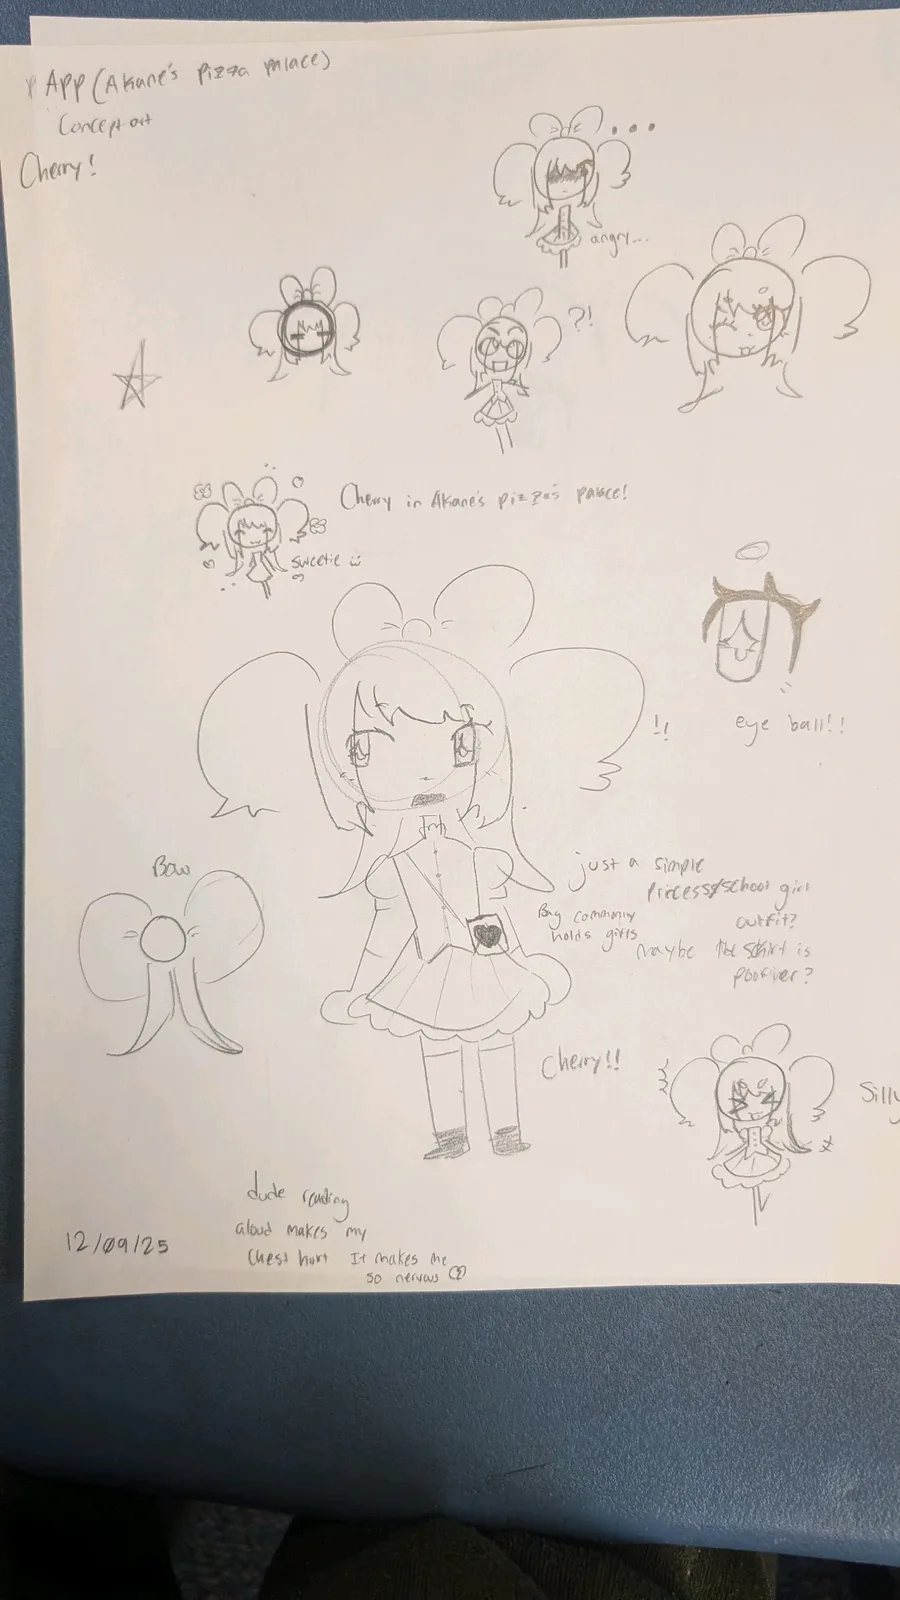 App (Akane's pizza palace)
Concept art
Cherry!
...
angry...
?!
Cherry in Akane's pizza's palace!
sweetie
!!
eye ball!!
Bow
just a simple
Princess/school girl
outfit?
maybe the skirt is
poofiyer?
Bag commonly
holds gifts
Cherry!!
Silly
dude reading
aloud makes my
chest hurt It makes me
so nervous
12/09/25